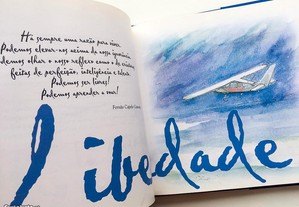 Há sempre uma razão para viver.
Podemos elevar-nos acima da nossa ignorância,
Podemos olhar o nosso reflexo como o de criaturas
feitas de perfeição, inteligência e talento.
Podemos ser livres!
Podemos aprender a voar!
Fernão Capelo Gaivota
libedade